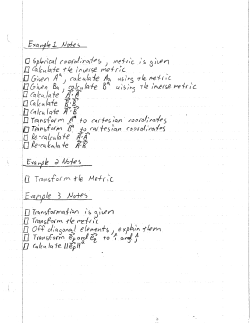 Example 1 Notes
Spherical coordinates, metric is given
Calculate the inverse metric
Given Aⁿ, calculate Aₙ using the metric
Given Bₙ, calculate Bⁿ using the inverse metric
Calculate A·A
Calculate B·B
Calculate A·B
Transform Aⁿ to cartesian coordinates
Transform Bⁿ to cartesian coordinates
Re-calculate A·A
Re-calculate A·B
Example 2 Notes
Transform the Metric
Example 3 Notes
Transformation is given
Transform the metric
Off diagonal elements, explain them
Transform and to î and ĵ
Calculate